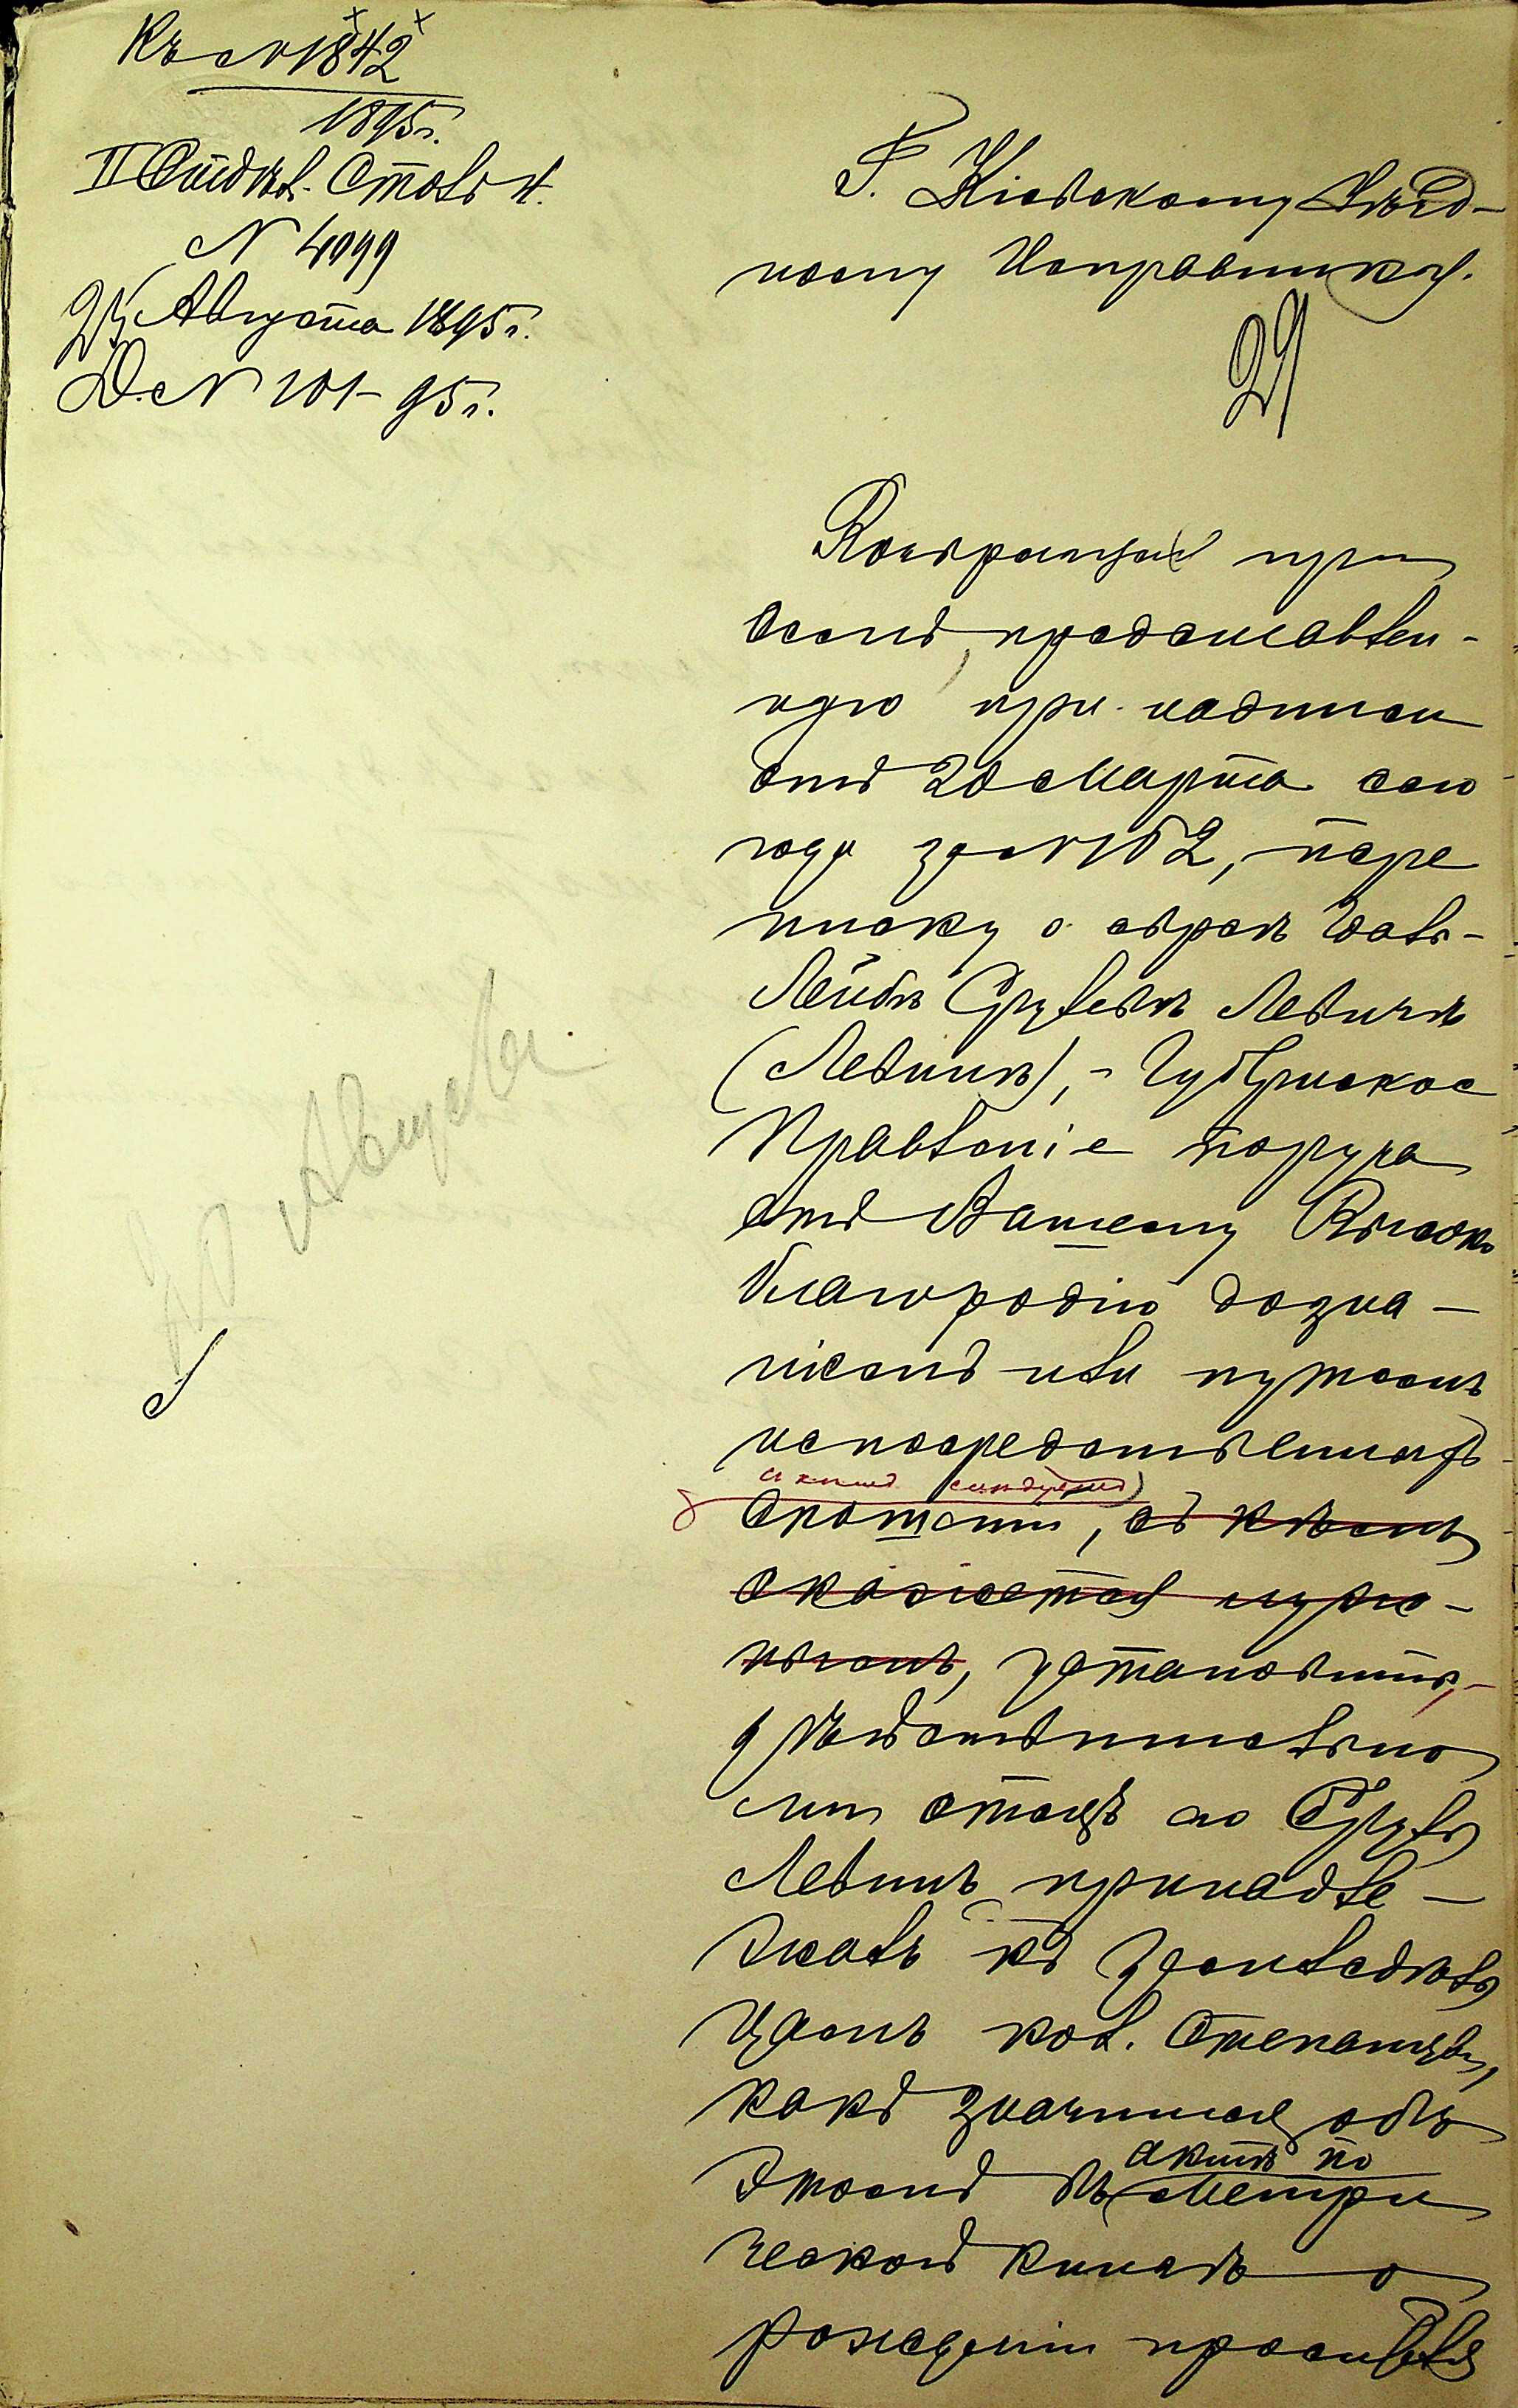 Къ № 1842
1895 г.
II Отдѣл. Столъ 4.
№ 4099
Августа 1895 г.
Д. № 101 - 95 г.
Г. Кіевскому Уѣзд-
ному Исправнику.
29
Возвращая при
семъ, представлен-
ную при надписи
отъ 20 Марта сего
года за № 152, пере
писку о евреѣ
Лейбѣ Срулевѣ Левичѣ
(Левинѣ), - Губернское
Правленіе поруча
етъ Вашему Высоко
благородію дозна-
ніемъ или путемъ
непосредственныхъ
сношеній, съ кѣмъ
окажется нуж-
нымъ, установить,-
дѣйствительно
ли отецъ его Сруль
Левинъ принадле-
жалъ къ земледѣль
цамъ кол. Степанцы,
какъ значится объ
актѣ по
этомъ въ Метри
ческой книгѣ о
рожденіи просителя
Августа